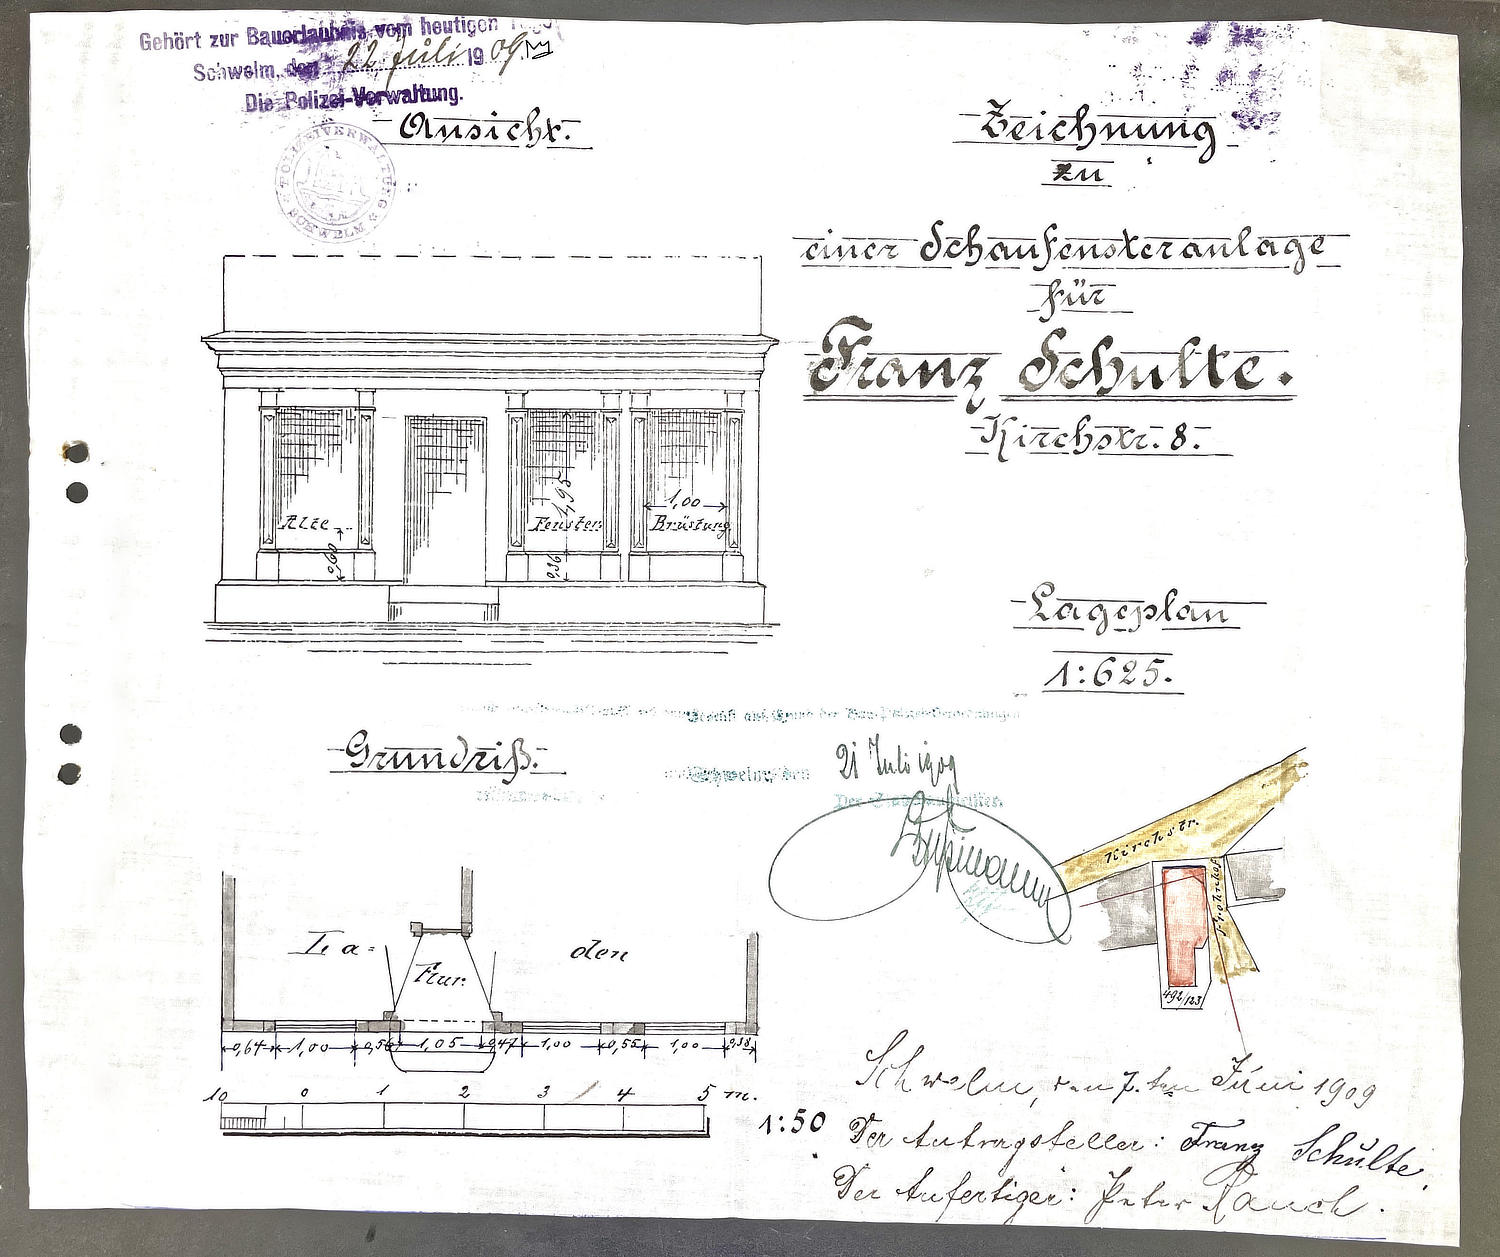 Gehört zur Bauerlaubnis vom heutigen Tage
Schwelm, den 22. Juli 1909
Die Polizei-Verwaltung.
POLIZEIVERWALTUNG SCHWELM
Ansicht.
Zeichnung
zu
einer Schaufensteranlage
für
Franz Schulte.
Kirchstr. 8.
Alte
0,60
Fenster.
1,95
0,36
1,00
Brüstung
Lageplan
1:625.
Geprüft auf Grund der Bau-Polizeiverordnungen
Schwelm, den 21 Juli 1909
Der Stadtbaumeister.
Grundriß.
La=
den
Flur.
0,64 1,00 0,56 1,05 0,47 1,00 0,55 1,00 0,38
10 0 1 2 3 4 5 m.
1:50
Kirchstr.
492/123
Schwelm, den 7. ten Juni 1909
Der Antragsteller: Franz Schulte.
Der Anfertiger: Peter Rauch.